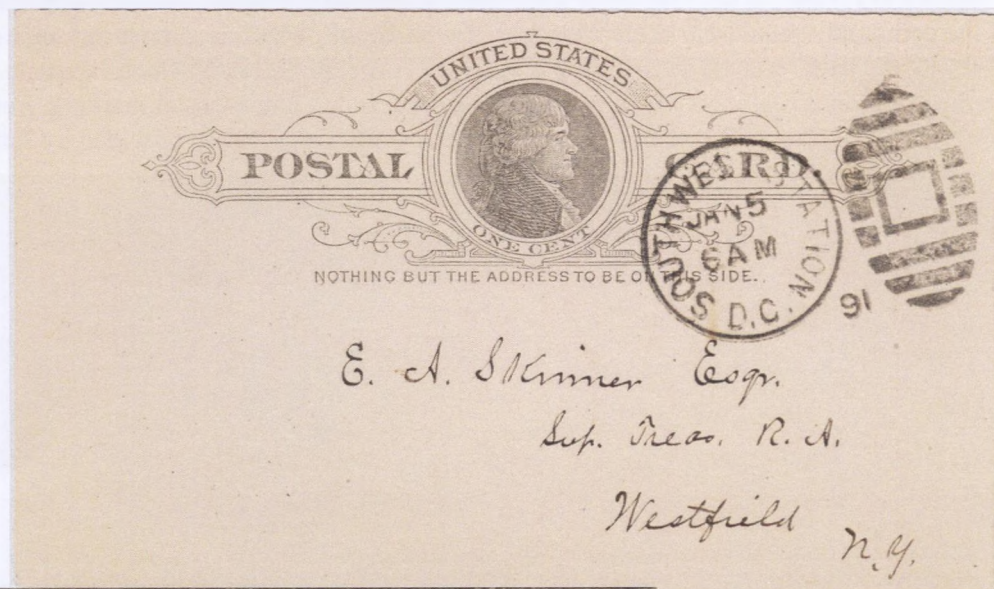 UNITED STATES
POSTAL CARD.
ONE CENT
NOTHING BUT THE ADDRESS TO BE ON THIS SIDE.
SOUTHWEST STATION
JAN 5
6 AM
D.C.
91
E. A. Skinner Esqr.
Sup. Treas. R. A.
Westfield
N.Y.